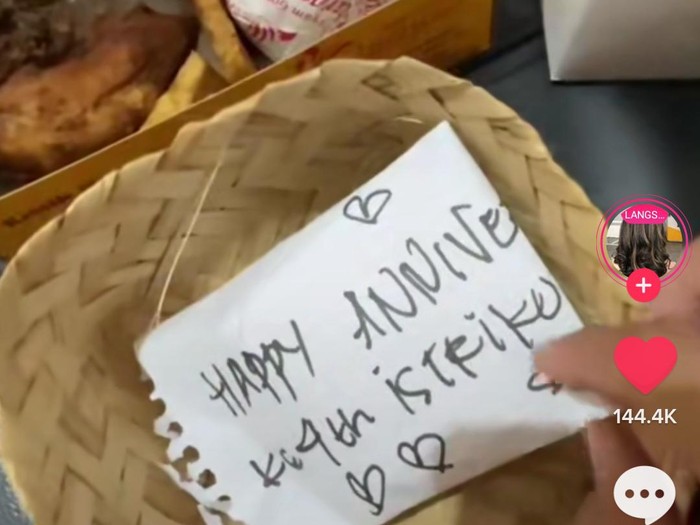 HAPPY ANNIVE
Ke 4th iSTRiKU
LANGS...
144.4K